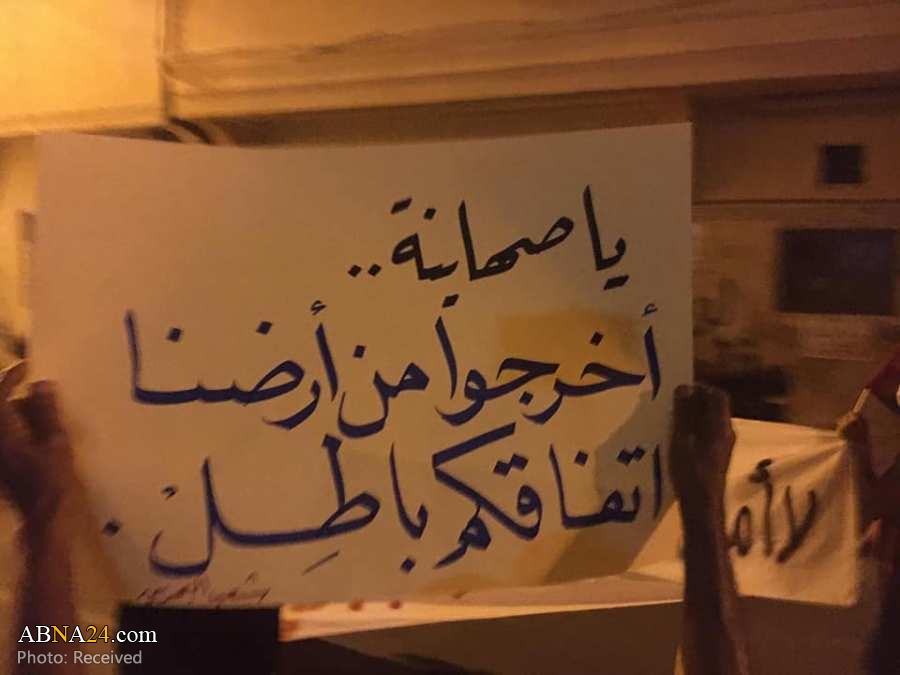 يا صهاينة..
أخرجوا من أرضنا
اتفاقكم باطِلْ.
لا أم
ABNA24.com
Photo: Received